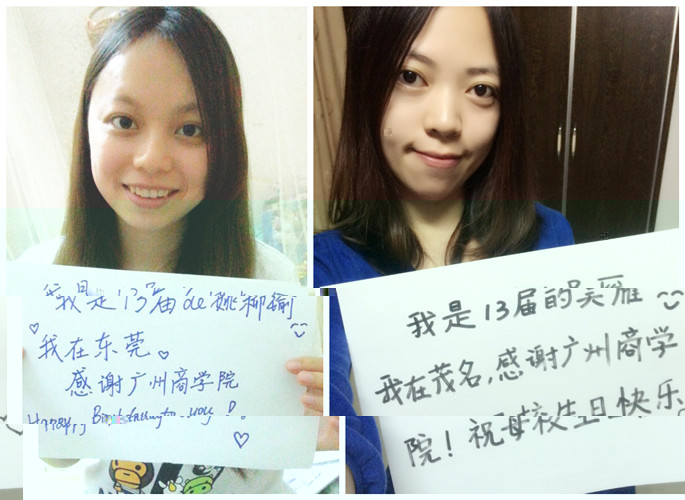 我是13届de姚柳
我在东莞
感谢广州商学院
我是13届的吴雁
我在茂名,感谢广州商学
院!祝母校生日快乐